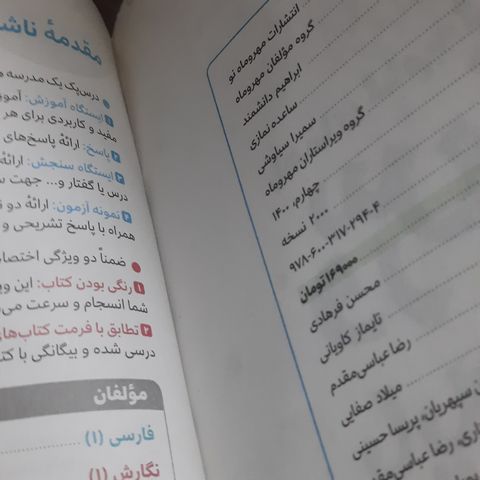 انتشارات مهروماه نو
گروه مؤلفان مهروماه
ابراهیم دانشمند
ساعده نمازی
سمیرا سیاوشی
گروه ویراستاران مهروماه
چهارم، ۱۴۰۰
۲۰۰۰ نسخه
۹۷۸-۶۰۰-۳۱۷-۲۹۴-۴
۱۶۹۰۰۰ تومان
محسن فرهادی
تایماز کاویانی
رضا عباسی‌مقدم
میلاد صفایی
سپهریان، پریسا حسینی
رضا عباسی‌مقدم
مقدمهٔ ناشر
درس‌یک یک مدرسه
۱ ایستگاه آموزش:
مفید و کاربردی برای هر
۲ پاسخ: ارائهٔ پاسخ‌های
۳ ایستگاه سنجش: ارائهٔ
درس یا گفتار و... جهت
۴ نمونه آزمون: ارائهٔ دو
همراه با پاسخ تشریحی و
ضمناً دو ویژگی
۱ رنگی بودن کتاب: این
شما انسجام و سرعت
۲ تطابق با فرمت کتاب‌های
درسی شده و بیگانگی با
مؤلفان
فارسی (۱)
نگارش (۱)